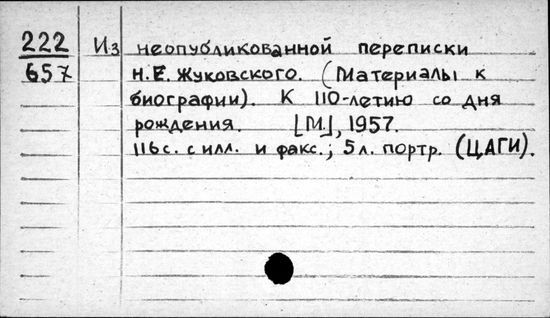 222 Из неопубликованной переписки
657 Н.Е. Жуковского. (Материалы к
биографии). К 110-летию со дня
рождения. [М.], 1957.
116с. с илл. и факс.; 5 л. портр. (ЦАГИ).